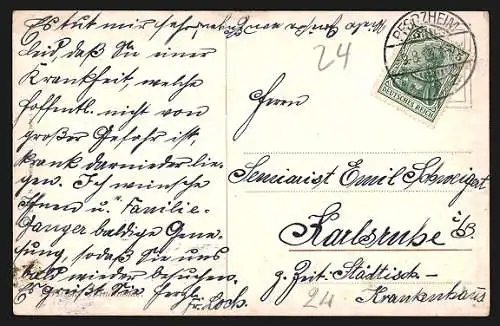 Es tut mir sehr
leid, daß Sie einer
Krankheit, welche
hoffentl. nicht von
großer Gefahr ist,
krank darnieder lie-
gen. Ich wünsche
Ihnen u. Familie
Danger baldige Gene-
sung, sodaß Sie uns
bald wieder besuchen.
Es grüßt Sie herzl.
Fr. Loch.
24
PFORZHEIM
DEUTSCHES REICH
Herrn
Seminarist Emil Schweigert
Karlsruhe i/B
z. Zeit. Städtisch
Krankenhaus
24